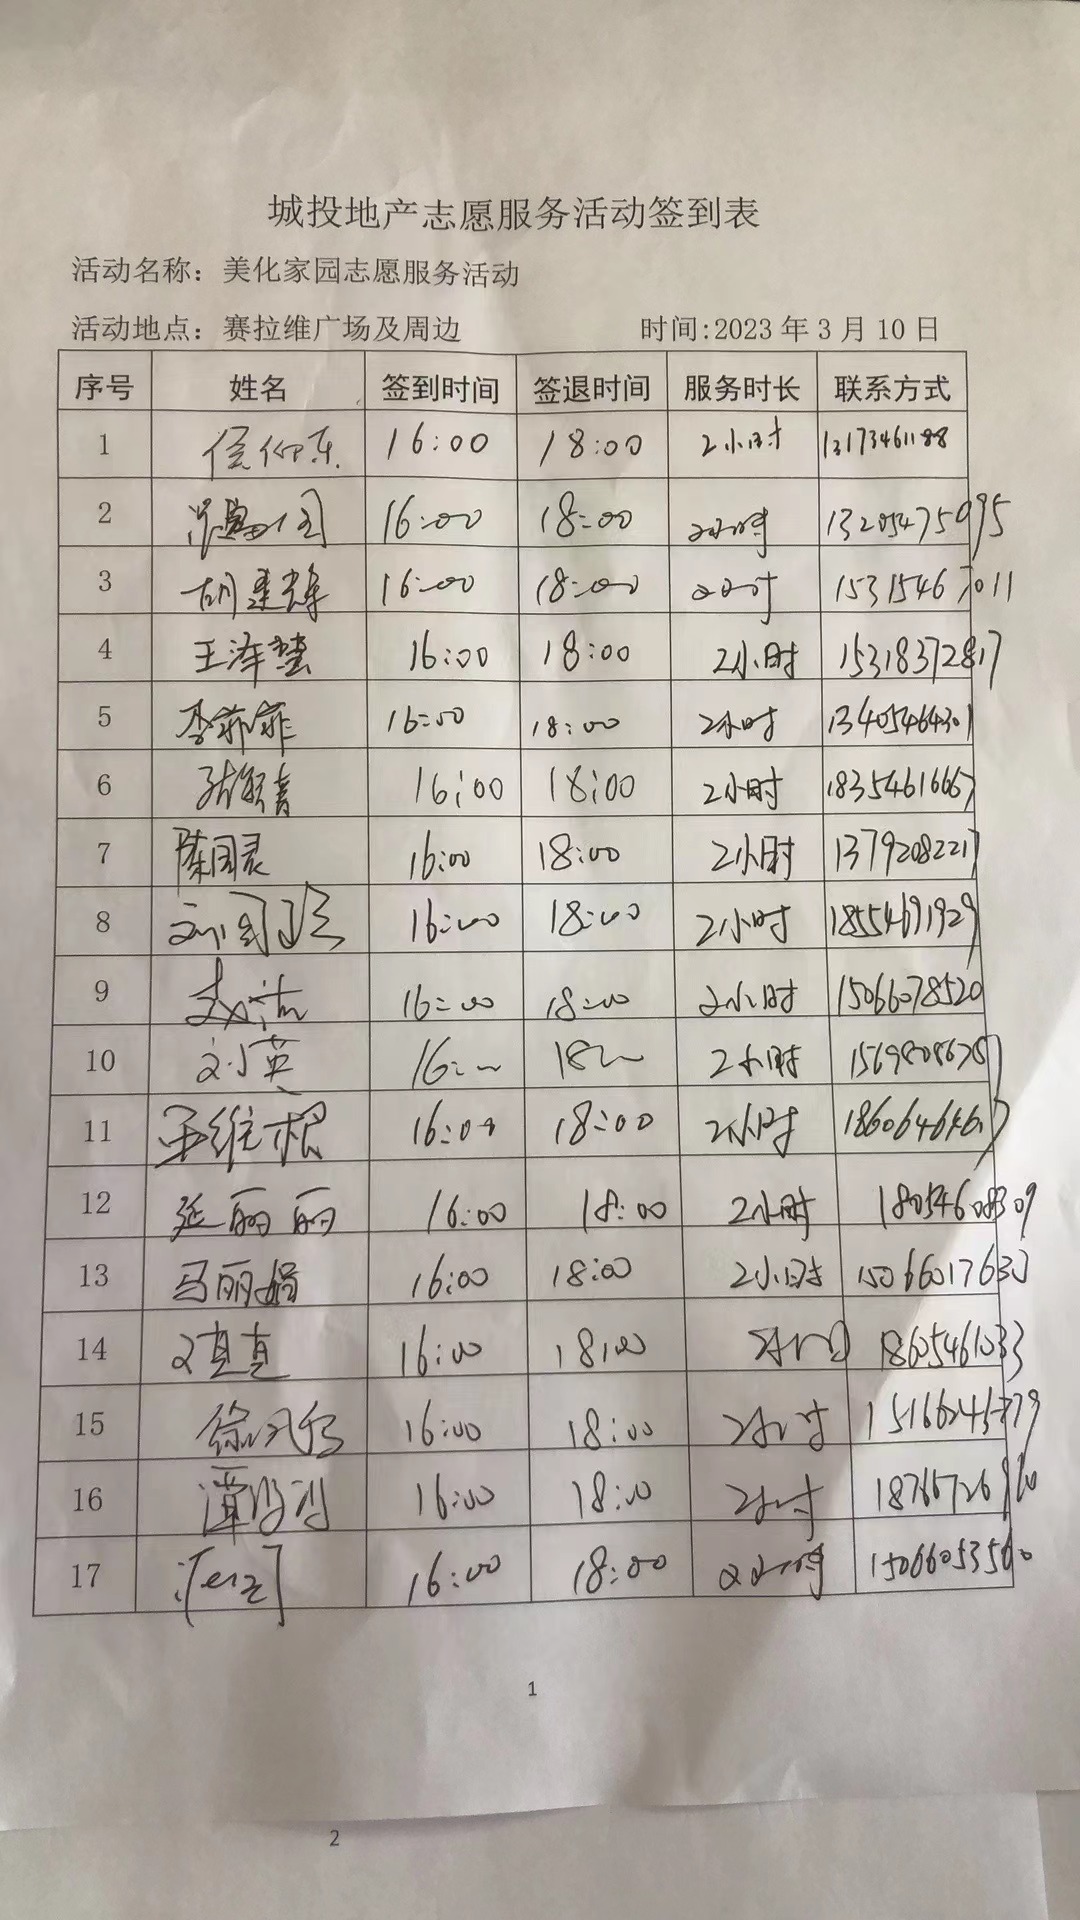 城投地产志愿服务活动签到表
活动名称：美化家园志愿服务活动
活动地点：赛拉维广场及周边 时间:2023年3月10日
序号 姓名 签到时间 签退时间 服务时长 联系方式
1 16:00 18:00 2小时 13173461188
2 16:00 18:00 2小时 13205475995
3 胡建辉 16:00 18:00 2小时 15315467011
4 王泽慧 16:00 18:00 2小时 15318372817
5 李菲菲 16:00 18:00 2小时 13405464301
6 16:00 18:00 2小时 18354616667
7 陈国灵 16:00 18:00 2小时 13792082217
8 16:00 18:00 2小时 18554691929
9 赵洁 16:00 18:00 2小时 15066078520
10 刘小英 16: 18 2小时
11 王维根 16:00 18:00 2小时
12 延丽丽 16:00 18:00 2小时 18054608309
13 马丽娟 16:00 18:00 2小时 15066017633
14 16:00 18:00 18605461033
15 16:00 18:00 2小时
16 16:00 18:00 2小时
17 16:00 18:00 2小时 15066053560
1
2